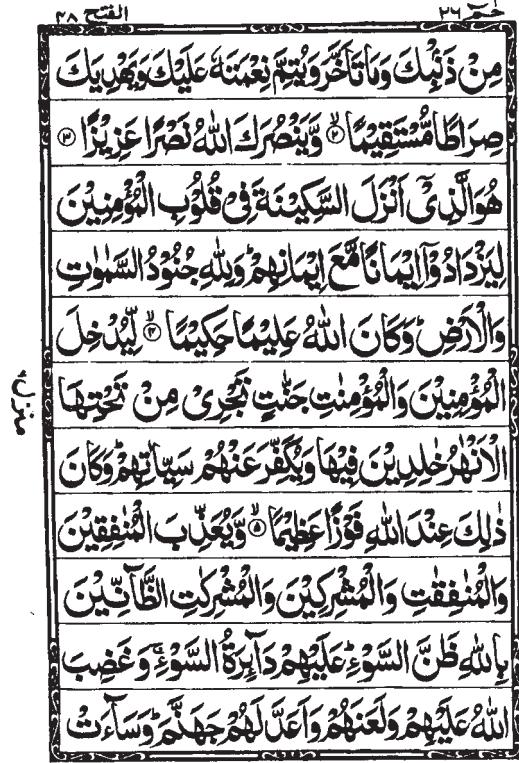 حٰمٓ ٢٦
الفتح ٤٨
مِنْ ذَنْۢبِكَ وَمَا تَاَخَّرَ وَيُتِمَّ نِعْمَتَهٗ عَلَيْكَ وَيَهْدِيَكَ
صِرَاطًا مُّسْتَقِيْمًا ۙ﴿۲﴾ وَّيَنْصُرَكَ اللّٰهُ نَصْرًا عَزِيْزًا ﴿۳﴾
هُوَ الَّذِىْۤ اَنْزَلَ السَّكِيْنَةَ فِىْ قُلُوْبِ الْمُؤْمِنِيْنَ
لِيَزْدَادُوْۤا اِيْمَانًا مَّعَ اِيْمَانِهِمْ ؕ وَلِلّٰهِ جُنُوْدُ السَّمٰوٰتِ
وَالْاَرْضِ ؕ وَكَانَ اللّٰهُ عَلِيْمًا حَكِيْمًا ۙ﴿۴﴾ لِّيُدْخِلَ
الْمُؤْمِنِيْنَ وَالْمُؤْمِنٰتِ جَنّٰتٍ تَجْرِىْ مِنْ تَحْتِهَا
الْاَنْهٰرُ خٰلِدِيْنَ فِيْهَا وَيُكَفِّرَ عَنْهُمْ سَيِّاٰتِهِمْ ؕ وَكَانَ
ذٰلِكَ عِنْدَ اللّٰهِ فَوْزًا عَظِيْمًا ۙ﴿۵﴾ وَّيُعَذِّبَ الْمُنٰفِقِيْنَ
وَالْمُنٰفِقٰتِ وَالْمُشْرِكِيْنَ وَالْمُشْرِكٰتِ الظَّآنِّيْنَ
بِاللّٰهِ ظَنَّ السَّوْءِ ؕ عَلَيْهِمْ دَآئِرَةُ السَّوْءِ ۚ وَغَضِبَ
اللّٰهُ عَلَيْهِمْ وَلَعَنَهُمْ وَاَعَدَّ لَهُمْ جَهَنَّمَ ؕ وَسَآءَتْ
منزل ٦